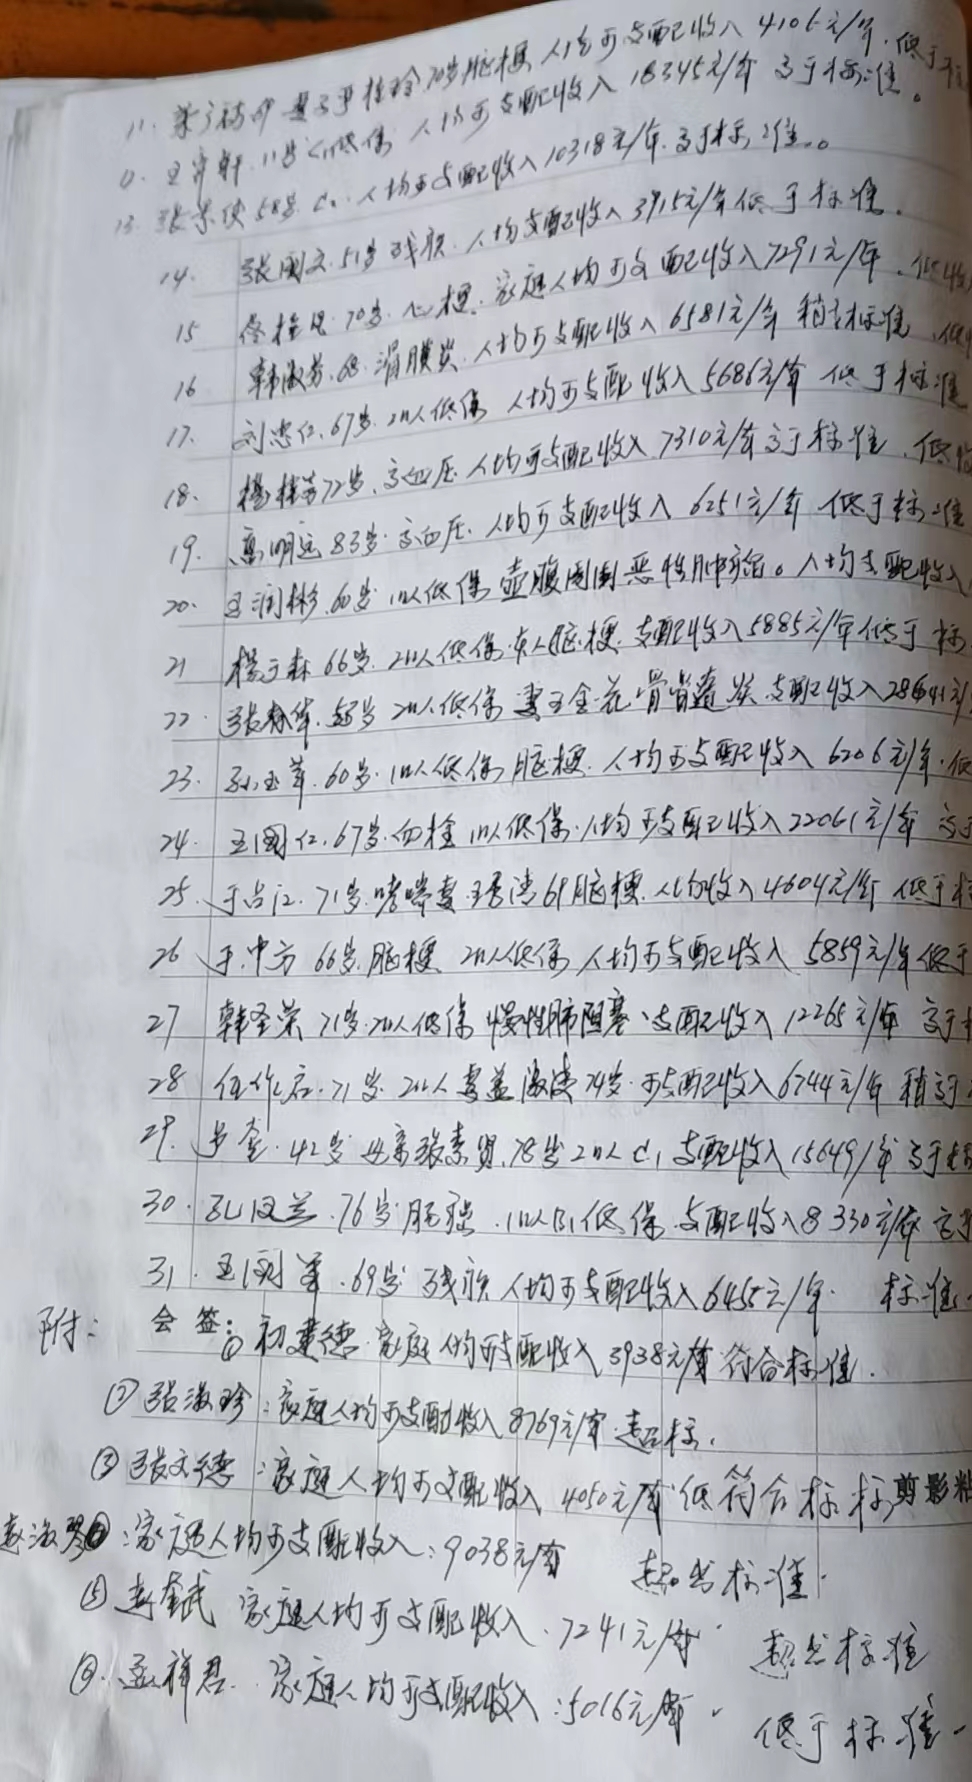 11. 妻子尹桂玲70岁脑梗 人均可支配收入4106元/年.低于
11岁 低保 人均可支配收入18345元/年 高于标准。
13. 58岁 人均可支配收入10318元/年.高于标准。
14. 张国文.51岁 残疾.人均支配收入3915元/年低于标准.
15 70岁.心梗.家庭人均可支配收入7291元/年.低收
16 韩淑芬.68.滑膜炎.人均可支配收入6581元/年 稍高标准
17. 刘忠仁.67岁.2人低保 人均可支配收入5686元/年 低于标准
18. 杨桂芳72岁.高血压.人均可支配收入7310元/年高于标准.低收
19. 高明远83岁.高血压.人均可支配收入6251元/年 低于标准
20. 王润彬.60岁.1人低保 壶腹周围恶性肿瘤。人均支配收入
21 杨玉森66岁.2人低保.本人脑梗.支配收入5885元/年低于标
22. 张林华 2人低保 妻王金花 骨骨遂炎 支配收入
23. 孙玉华.60岁.1人低保 脑梗.人均可支配收入6206元/年.低
24. 王国仁.67岁.血栓 1人低保.人均可支配收入22061元/年 高于
25. 于占江.71岁.哮喘妻 王秀清69脑梗.人均收入4604元/年 低于标
26 于中方 66岁.脑梗 2人低保 人均可支配收入5859元/年低于
27 韩圣荣 71岁.2人低保 慢性肺阻塞、支配收入12265元/年 高于
28 任作启.71岁.2人妻盖淑清74岁.可支配收入6744元/年 稍高于
29. 42岁 母亲张素贤.78岁2人 支配收入15649/年 高于标
30. 孔凡兰.76岁 脑梗.1人 低保.支配收入8330元/年 高于
31. 王润华.69岁 残疾 人均可支配收入6455元/年. 标准
附: 会签: ① 初建德.家庭人均可支配收入3938元/年 符合标准.
② 张淑珍:家庭人均可支配收入8769元/年.超标.
③ 张文德:家庭人均可支配收入4050元/年 低符合标标 剪影粘
赵淑琴④:家庭人均可支配收入:9038元/年 超出标准.
⑤ 赵奎武 家庭人均可支配收入.7241元/年. 超出标准
⑥. 孟祥君. 家庭人均可支配收入:5016元/年. 低于标准.